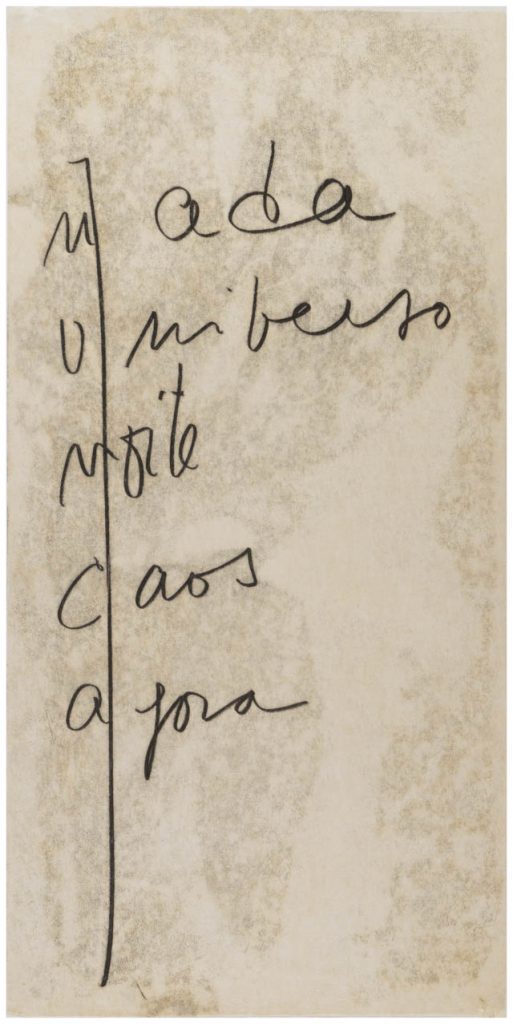 n ada
u niverso
n oite
c aos
a gora